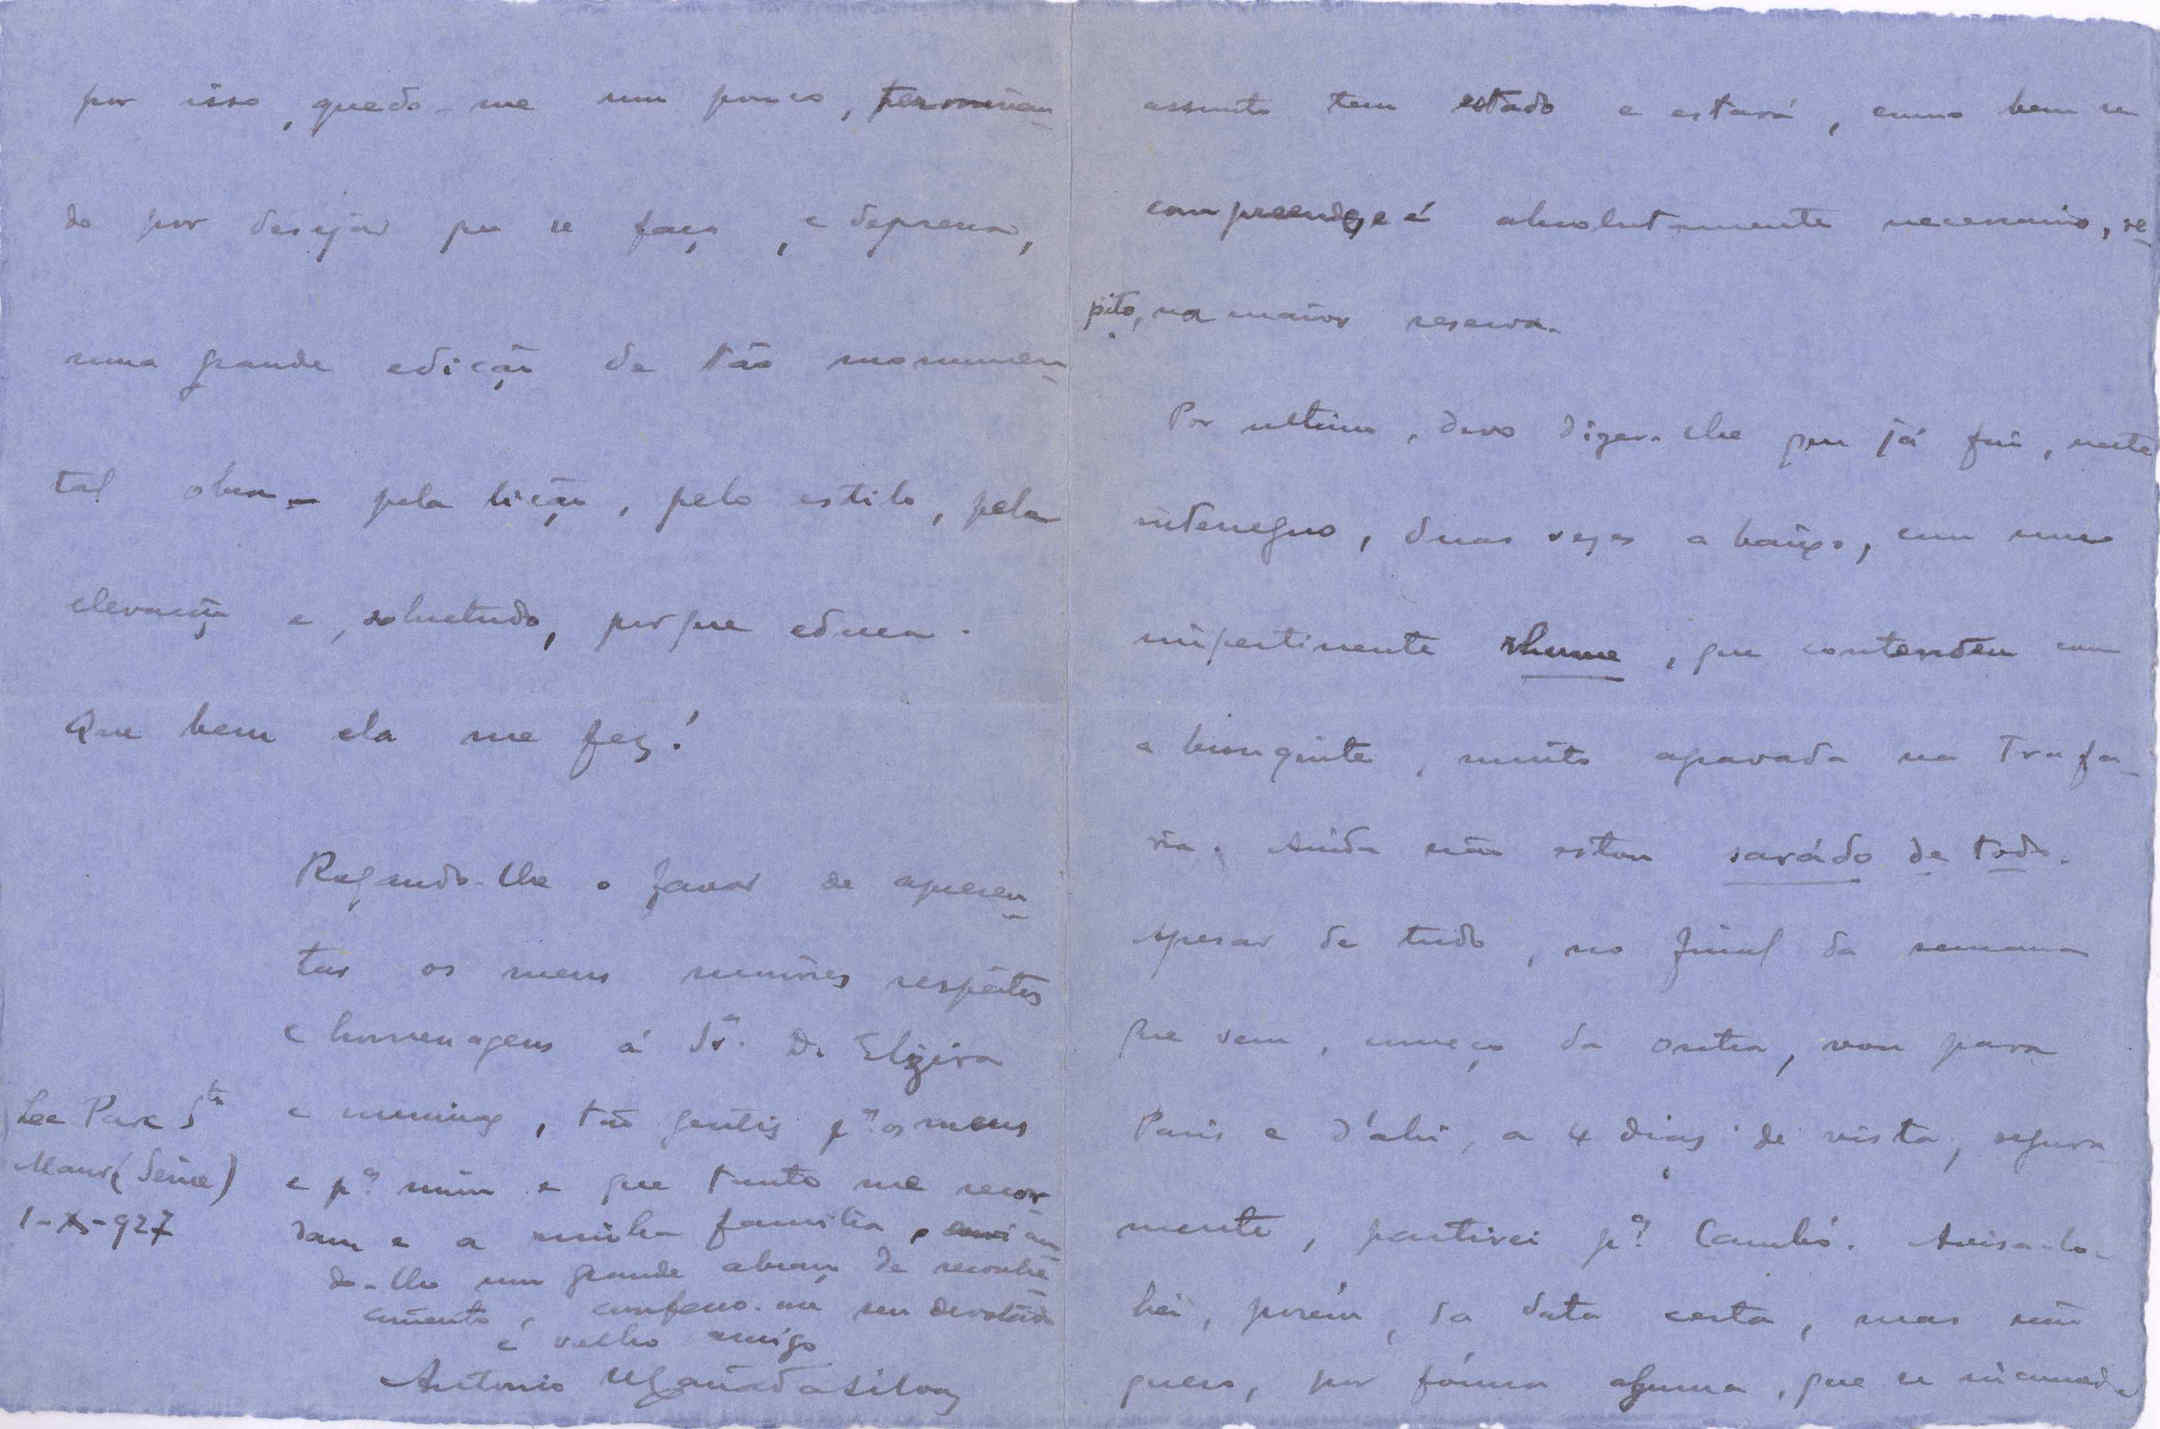 por isso, quedo-me um pouco, terminan-
do por desejar que se faça, e depressa,
uma grande edição de tão monumen-
tal obra - pela lição, pelo estilo, pela
elevação e, sobretudo, porque educa.
Que bem ela me fez!
Rogando-lhe o favor de apresen-
tar os meus respeitos
e homenagens á Sr.ª D. Elzira
e meninas, tão gentis p.ª os meus
e p.ª mim e que tanto me recor-
dam e a minha familia, envian-
do-lhe um grande abraço de reconhe-
cimento, confesso-me seu devotado
e velho amigo
Antonio da Silva
Le Parc St
Maur (Seine)
1-X-927
assunto tem estado e estará, como bem se
compreende, e é absolutamente necessario, re-
pito, na maior reserva.
Por ultimo, devo dizer-lhe que já fui, neste
interregno, duas vezes a baixo, com um
impertinente rhume, que contendeu com
a bronquite, muito agravada na Trafa-
ria. Ainda não estou sarádo de todo.
Apesar de tudo, no final da semana
que vem, começo da outra, vou para
Paris e d'ahi, a 4 dias de vista, segura-
mente, partirei p.ª Cambó. Avisa-lo-
hei, porém, da data certa, mas não
quero, por fórma alguma, que se incomode